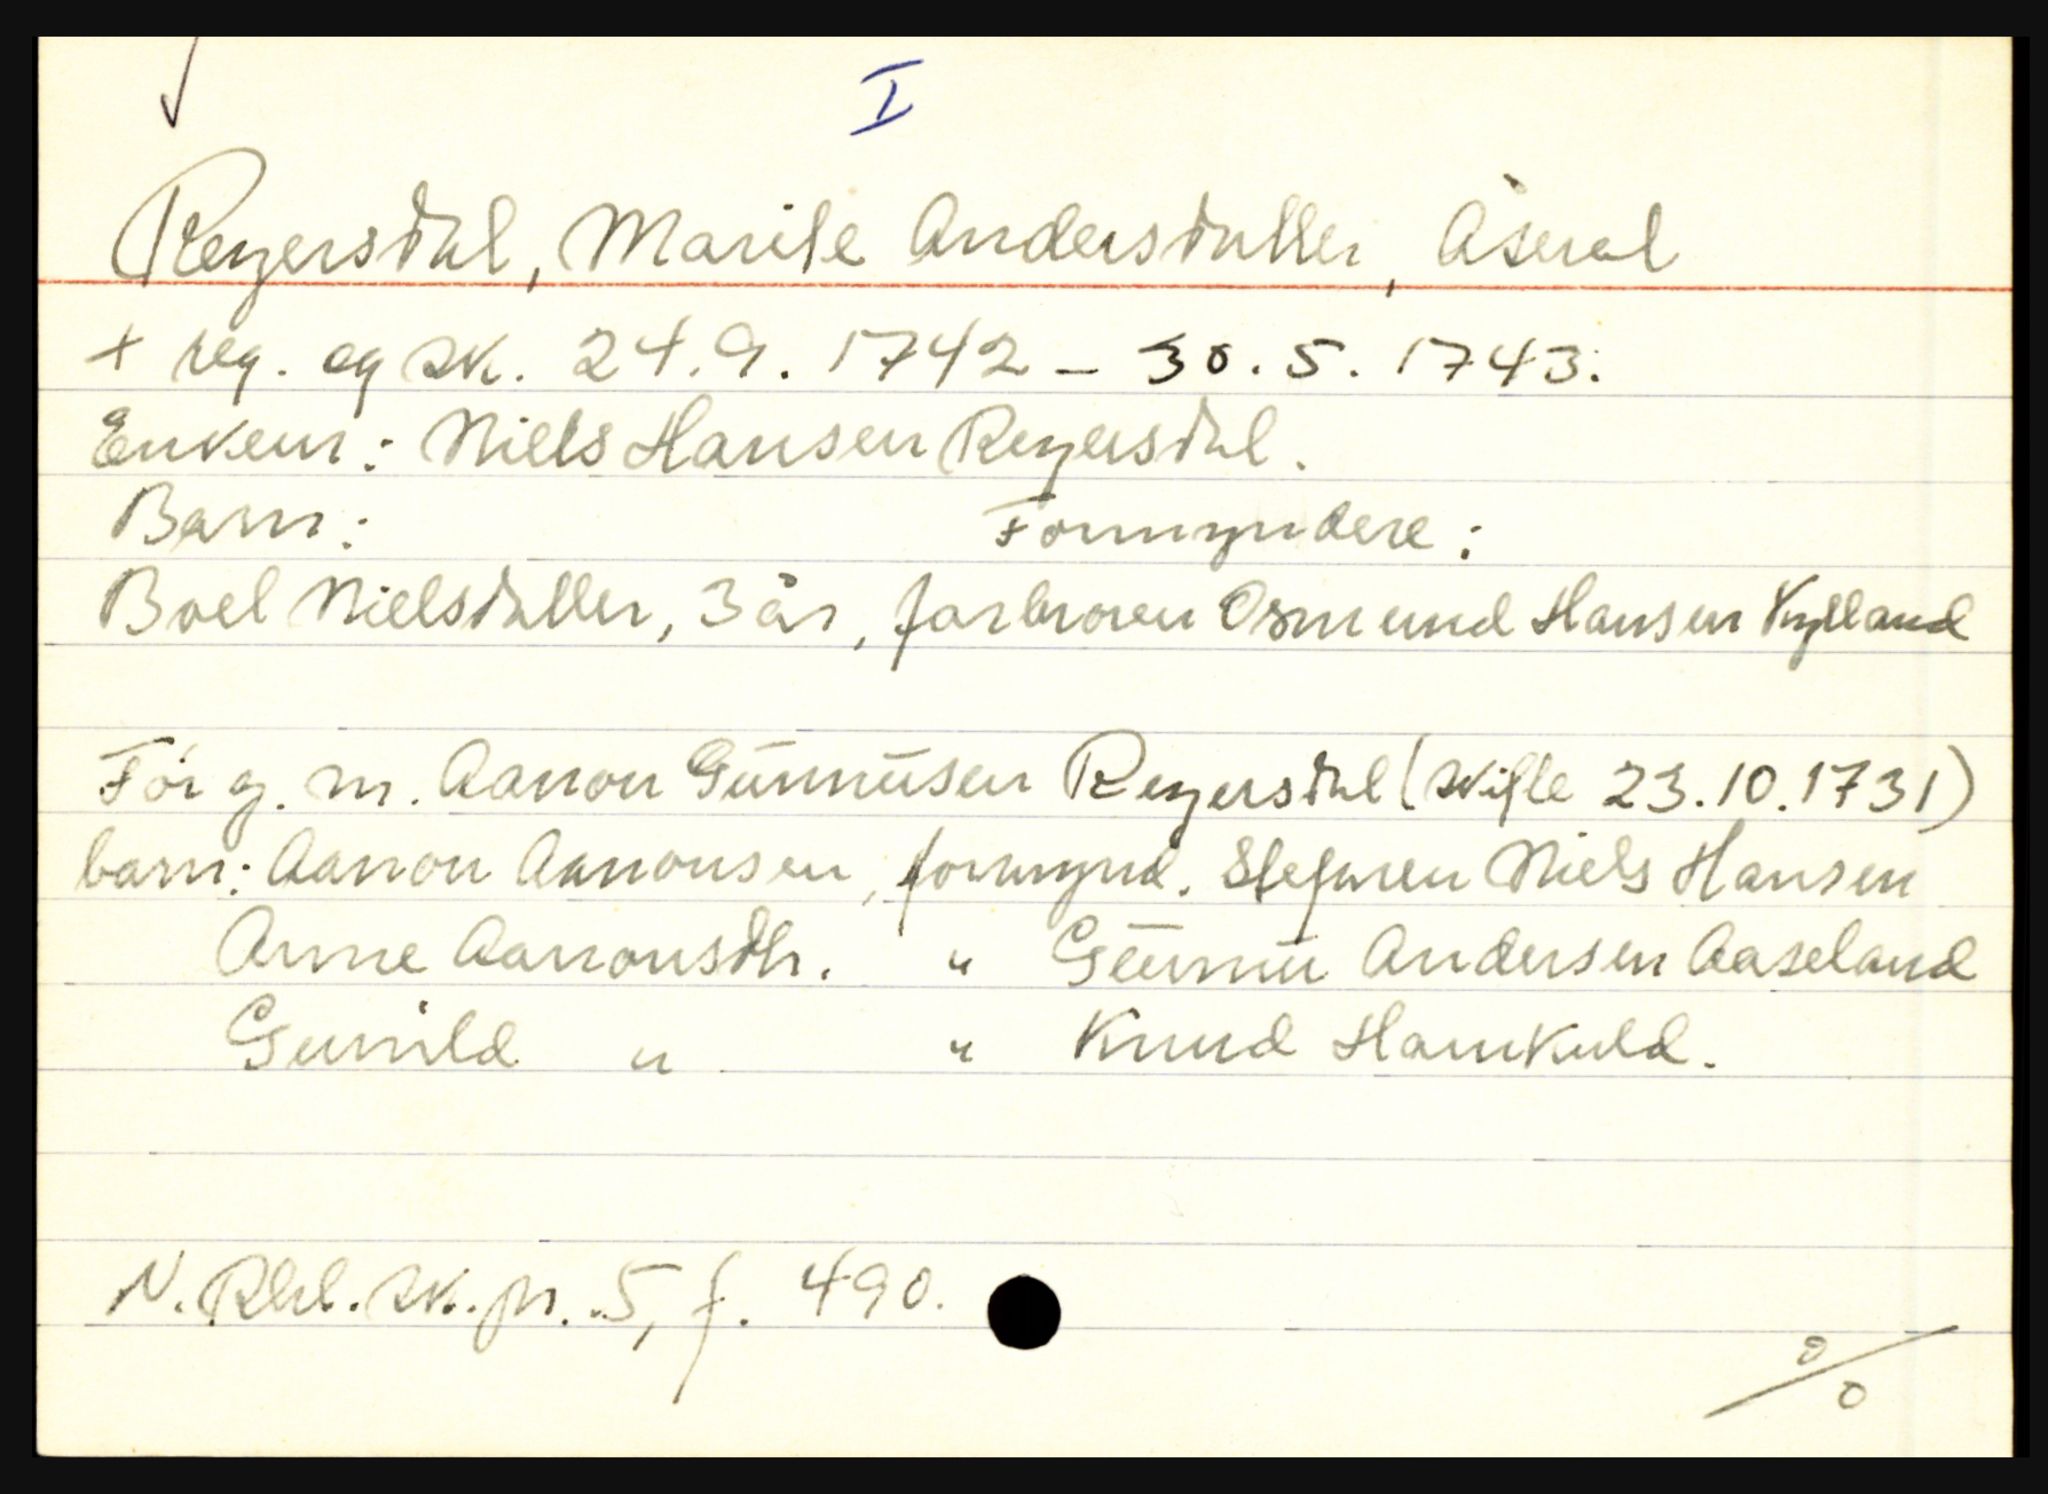 I
Reyersdal, Marite Andersdatter, Åseral
+ reg. og sk. 24.9.1742 - 30.5.1743.
Enkem: Niels Hansen Reyersdal.
Barn: Formyndere:
Boel Nielsdatter, 3 år, farbroren Osmund Hansen Kylland
Før g. m. Aanon Gunnusen Reyersdal (skifte 23.10.1731)
barn: Aanon Aanonsen, formynd. Stefaren Niels Hansen
Anne Aanonsdtr. " Gunnu Andersen Aaseland
Gunild " " Knud Hamkuld.
N. Rbl. sk. pr. 5, f. 490.
0/0